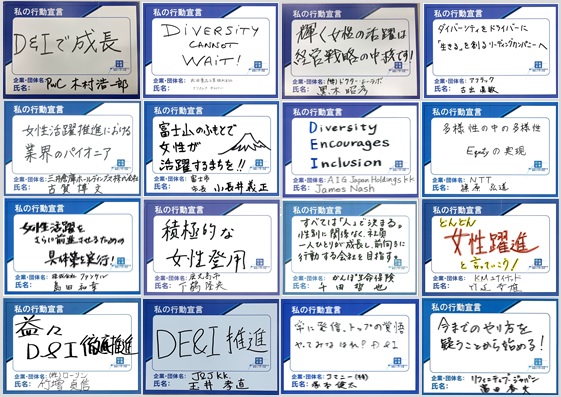 私の行動宣言
D&Iで成長
企業・団体名: PwC
氏名: 木村浩一郎
私の行動宣言
DIVERSITY
CANNOT
WAIT!
企業・団体名:
氏名:
私の行動宣言
輝く女性の活躍は
経営戦略の中核です!
企業・団体名: (株)ドクターシーラボ
氏名:
私の行動宣言
ダイバーシティをドライバーに
「生きる」を創るリーディングカンパニーへ
企業・団体名: アフラック
氏名: 古出眞敏
私の行動宣言
女性活躍推進における
業界のパイオニア
企業・団体名:
氏名: 古賀博文
私の行動宣言
富士山のふもとで
女性が
活躍するまちを!!
企業・団体名: 富士市
氏名: 市長 小長井義正
私の行動宣言
Diversity
Encourages
Inclusion
企業・団体名: AIG Japan Holdings KK
氏名: James Nash
私の行動宣言
多様性の中の多様性
Equityの実現
企業・団体名: NTT
氏名:
私の行動宣言
女性活躍を
さらに前進させるための
具体策を実行!
企業・団体名: 株式会社 ファンケル
氏名: 島田和幸
私の行動宣言
積極的な
女性登用
企業・団体名:
氏名:
私の行動宣言
すべては「人」で決まる。
性別に関係なく、社員
一人ひとりが成長し、前向きに
行動する会社を目指す。
企業・団体名:
氏名:
私の行動宣言
どんどん
女性躍進
と言っていこう!
企業・団体名:
氏名:
私の行動宣言
益々
D&I 徹底推進
企業・団体名: (株)ローソン
氏名: 竹増貞信
私の行動宣言
DE&I推進
企業・団体名: J&J KK.
氏名: 玉井孝直
私の行動宣言
常に発信、トップの覚悟
D&I
企業・団体名: コマニー(株)
氏名: 塚本健太
私の行動宣言
今までのやり方を
疑うことから始める!
企業・団体名: リフィニティブ・ジャパン
氏名: